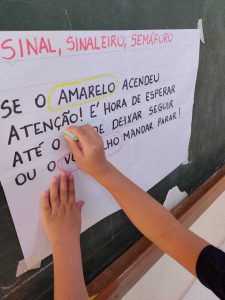 SINAL, SINALEIRO, SEMÁFORO
SE O AMARELO ACENDEU
ATENÇÃO! É HORA DE ESPERAR
ATÉ O DE DEIXAR SEGUIR
OU O MANDAR PARAR!